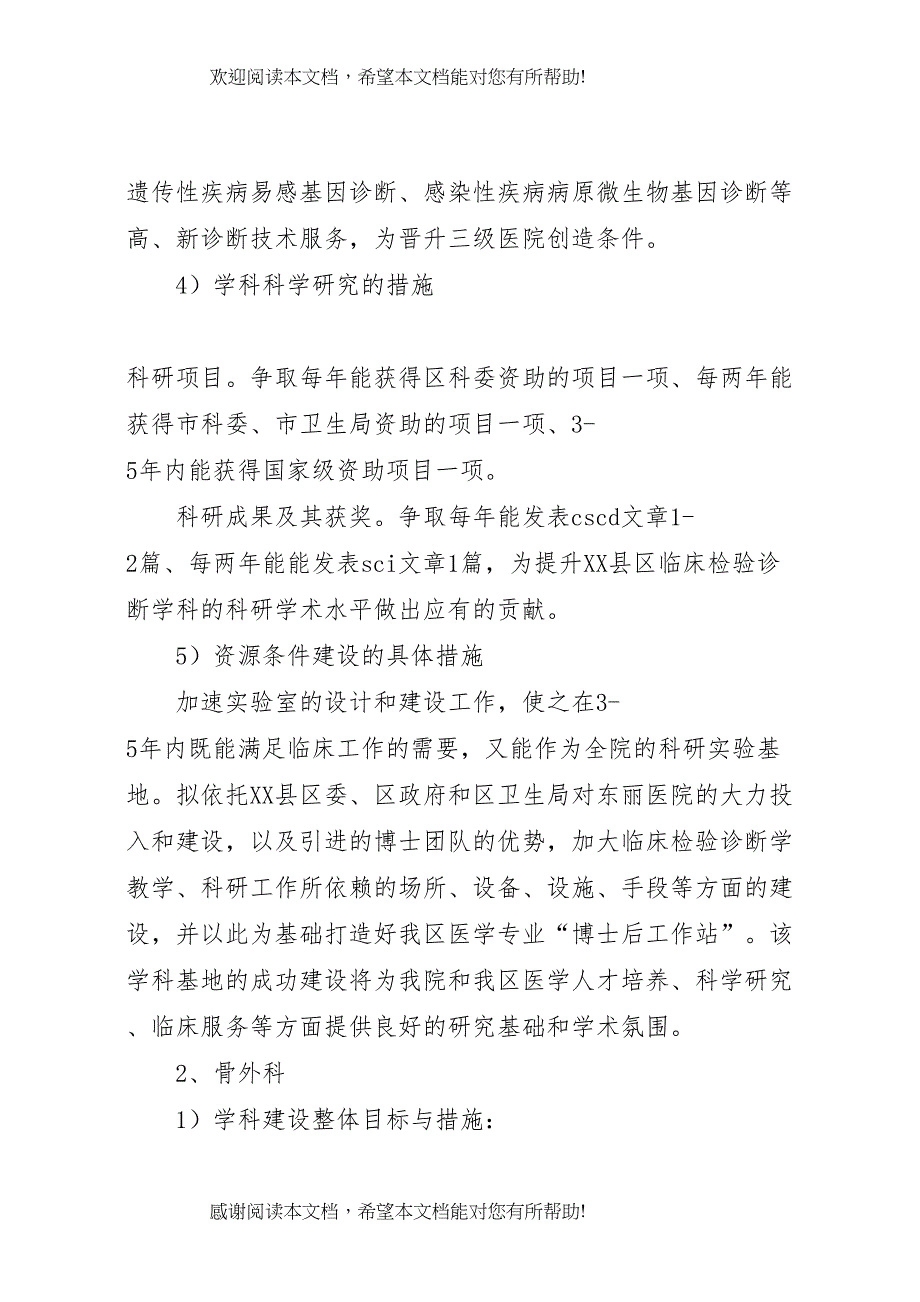 欢迎阅读本文档，希望本文档能对您有所帮助!
遗传性疾病易感基因诊断、感染性疾病病原微生物基因诊断等
高、新诊断技术服务，为晋升三级医院创造条件。
4）学科科学研究的措施
科研项目。争取每年能获得区科委资助的项目一项、每两年能
获得市科委、市卫生局资助的项目一项、3-
5年内能获得国家级资助项目一项。
科研成果及其获奖。争取每年能发表cscd文章1-
2篇、每两年能能发表sci文章1篇，为提升XX县区临床检验诊
断学科的科研学术水平做出应有的贡献。
5）资源条件建设的具体措施
加速实验室的设计和建设工作，使之在3-
5年内既能满足临床工作的需要，又能作为全院的科研实验基
地。拟依托XX县区委、区政府和区卫生局对东丽医院的大力投
入和建设，以及引进的博士团队的优势，加大临床检验诊断学
教学、科研工作所依赖的场所、设备、设施、手段等方面的建
设，并以此为基础打造好我区医学专业“博士后工作站”。该
学科基地的成功建设将为我院和我区医学人才培养、科学研究
、临床服务等方面提供良好的研究基础和学术氛围。
2、骨外科
1）学科建设整体目标与措施：
感谢阅读本文档，希望本文档能对您有所帮助!